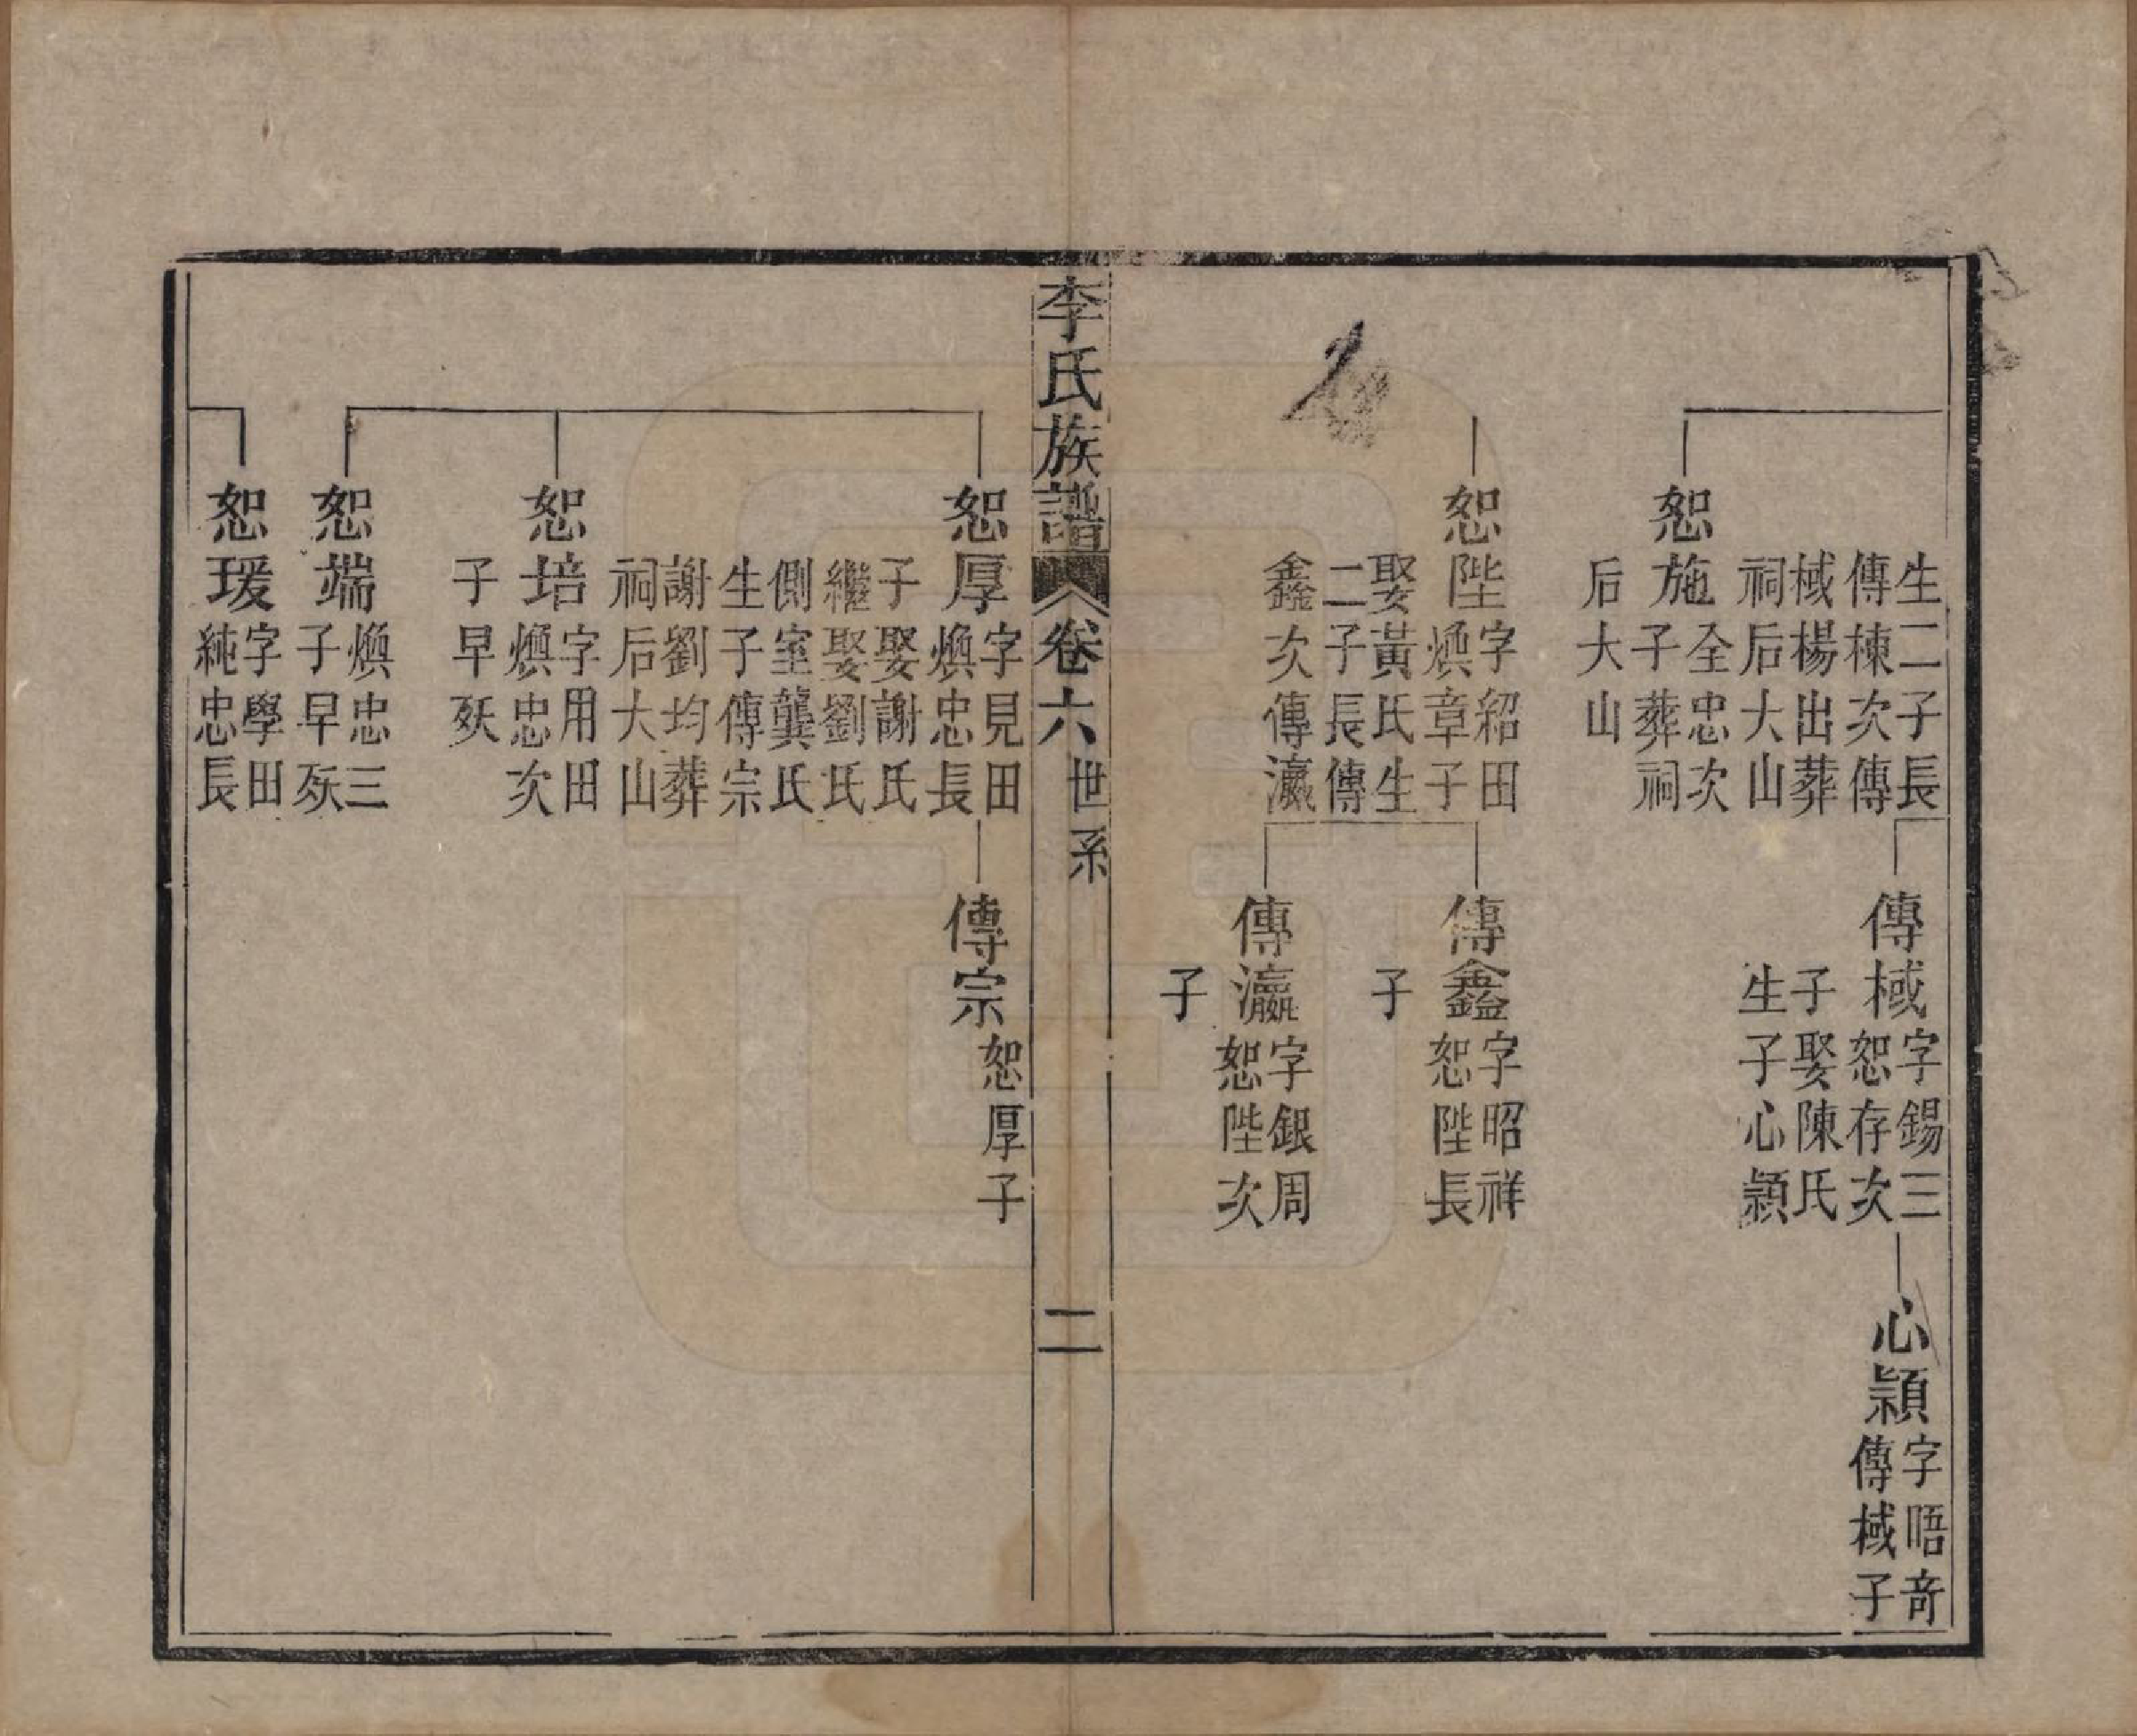 生二子長
傳棟次傳
棫楊出葬
祠后大山
恕施
全忠次
子葬祠
后大山
恕陛
字紹田
煥章子
娶黃氏生
二子長傳
鑫次傳瀛
傳棫
字錫三
恕存次
子娶陳氏
生子心穎
傳鑫
字昭祥
恕陛長
子
傳瀛
字銀周
恕陛次
子
心穎
字唔奇
傳棫子
李氏族譜
卷六
世系
二
恕厚
字見田
煥忠長
子娶謝氏
繼娶劉氏
側室龔氏
生子傳宗
謝劉均葬
祠后大山
恕培
字用田
煥忠次
子早殀
恕端
煥忠三
子早殀
恕瑗
字學田
純忠長
傳宗
恕厚子